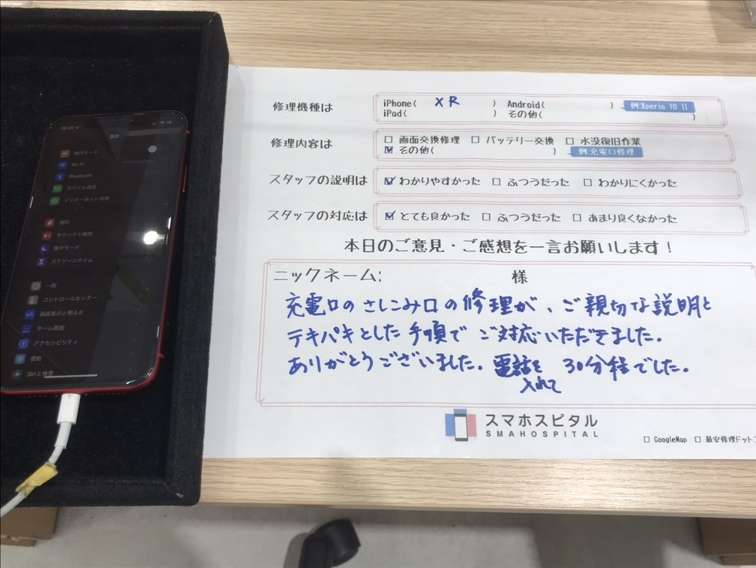 修理機種は
iPhone( XR ) Android( ) 例:Xperia 10 II
iPad( ) その他( )
修理内容は
□ 画面交換修理 □ バッテリー交換 □ 水没復旧作業
☑ その他( ) 例:充電口修理
スタッフの説明は ☑ わかりやすかった □ ふつうだった □ わかりにくかった
スタッフの対応は ☑ とても良かった □ ふつうだった □ あまり良くなかった
本日のご意見・ご感想を一言お願いします!
ニックネーム: 様
充電口のさしこみ口の修理が、ご親切な説明と
テキパキとした手順でご対応いただきました。
ありがとうございました。電話を入れて30分程でした。
スマホスピタル
SMAHOSPITAL
□ GoogleMap □ 最安修理ドット
Bluetooth
一般
コントロールセンター
ホーム画面
アクセシビリティ